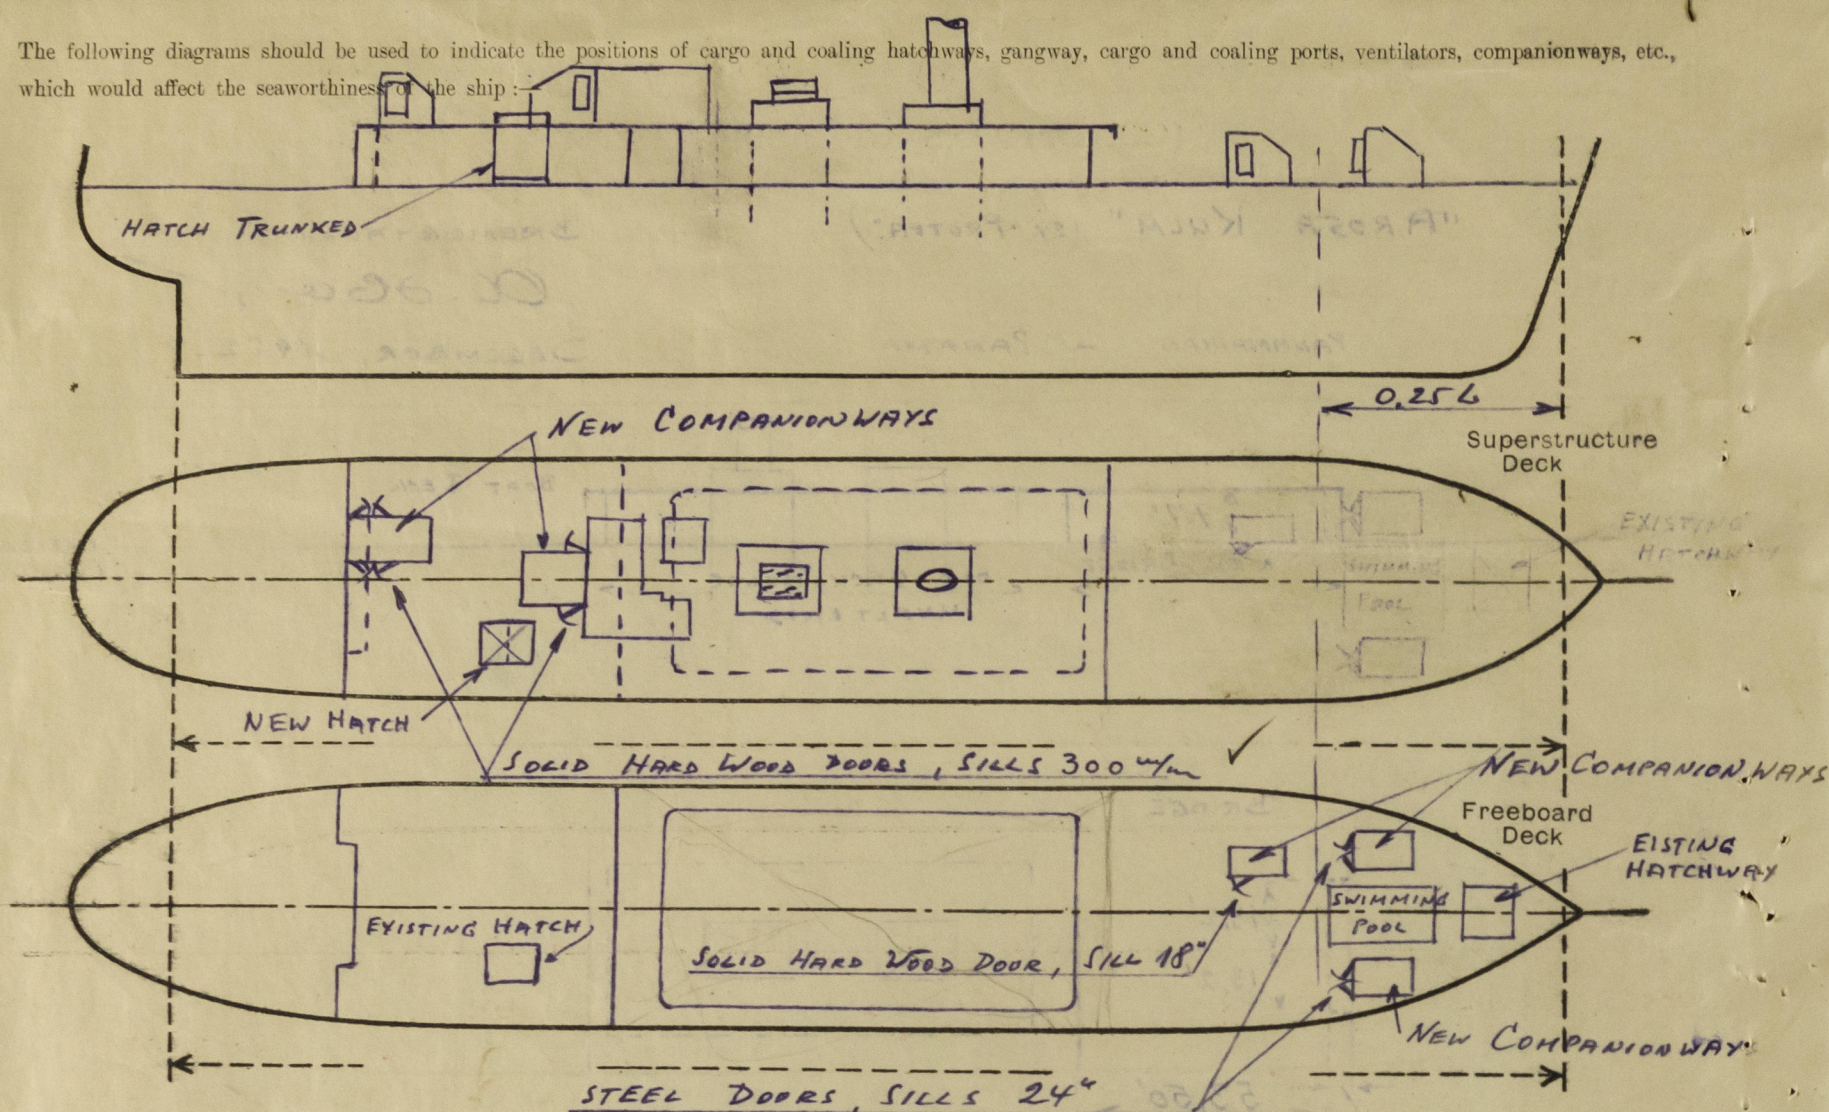 The following diagrams should be used to indicate the positions of cargo and coaling hatchways, gangway, cargo and coaling ports, ventilators, companionways, etc.,
which would affect the seaworthiness of the ship :—
HATCH TRUNKED
"AROSA KULM"
0,25 L
NEW COMPANIONWAYS
Superstructure
Deck
EXISTING
HATCHWAY
SWIMMING
POOL
NEW HATCH
SOLID HARD WOOD DOORS, SILLS 300 m/m
NEW COMPANION WAYS
Freeboard
Deck
EISTING
HATCHWAY
EXISTING HATCH
SWIMMING
POOL
SOLID HARD WOOD DOOR, SILL 18"
NEW COMPANIONWAY
STEEL DOORS, SILLS 24"